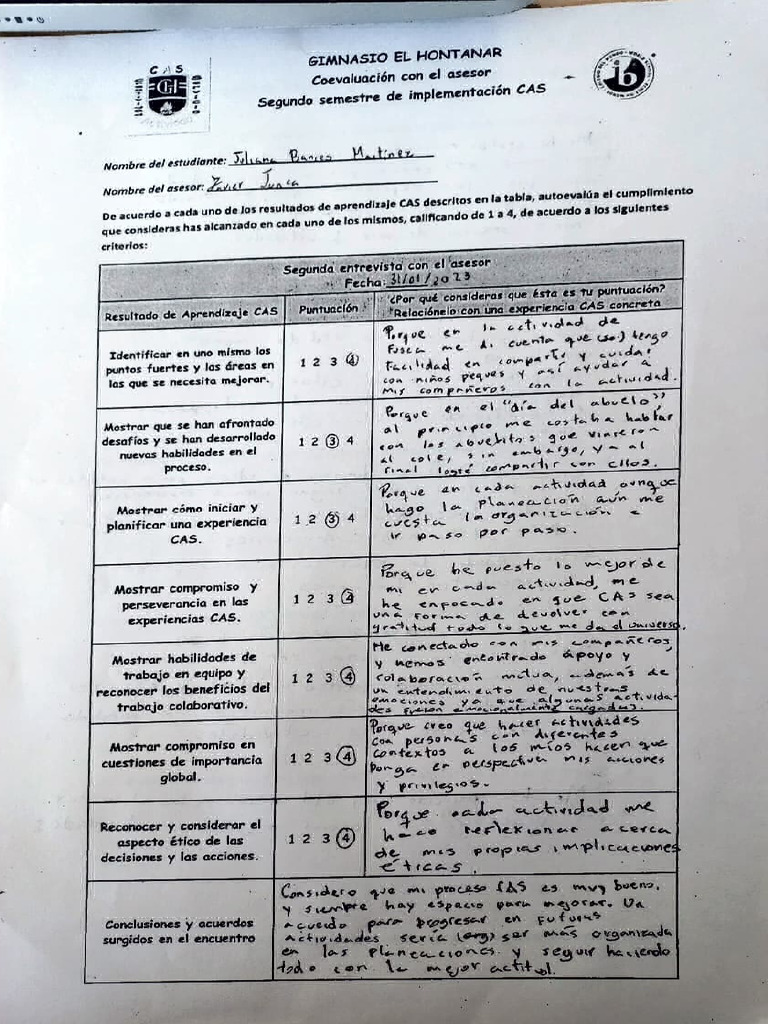 C A S
GIMNASIO EL HONTANAR
Coevaluación con el asesor
Segundo semestre de implementación CAS
ib
Nombre del estudiante: Juliana Barios Martinez
Nombre del asesor: Javier Junca
De acuerdo a cada uno de los resultados de aprendizaje CAS descritos en la tabla, autoevalúa el cumplimiento
que consideras has alcanzado en cada uno de los mismos, calificando de 1 a 4, de acuerdo a los siguientes
criterios:
Segunda entrevista con el asesor
Fecha: 31/01/2023
Resultado de Aprendizaje CAS
Puntuación
¿Por qué consideras que ésta es tu puntuación?
*Relaciónelo con una experiencia CAS concreta
Identificar en uno mismo los
puntos fuertes y las áreas en
las que se necesita mejorar.
1 2 3 4
Porque en la actividad de
Fusca me di cuenta que tengo
facilidad en compartir y cuidar
con niños peques y así ayudar a
mis compañeros con la actividad.
Mostrar que se han afrontado
desafíos y se han desarrollado
nuevas habilidades en el
proceso.
1 2 3 4
Porque en el "día del abuelo",
al principio me costaba hablar
con los abuelitos que vinieron
al cole, sin embargo, ya al
final logré compartir con ellos.
Mostrar cómo iniciar y
planificar una experiencia
CAS.
1 2 3 4
Porque en cada actividad aunque
hago la planeación aún me
cuesta la organización e
ir paso por paso.
Mostrar compromiso y
perseverancia en las
experiencias CAS.
1 2 3 4
Porque he puesto lo mejor de
mi en cada actividad, me
he enfocado en que CAS sea
una forma de devolver con
gratitud todo lo que me da el universo.
Mostrar habilidades de
trabajo en equipo y
reconocer los beneficios del
trabajo colaborativo.
1 2 3 4
He conectado con mis compañeros,
y hemos encontrado apoyo y
colaboración mutua, además de
un entendimiento de nuestras
emociones ya que algunas activida-
des fueron emocionalmente cargadas.
Mostrar compromiso en
cuestiones de importancia
global.
1 2 3 4
Porque creo que hacer actividades
con personas con diferentes
contextos a los míos hacen que
ponga en perspectiva mis acciones
y privilegios.
Reconocer y considerar el
aspecto ético de las
decisiones y las acciones.
1 2 3 4
Porque cada actividad me
hace reflexionar acerca
de mis propias implicaciones
éticas.
Conclusiones y acuerdos
surgidos en el encuentro
Considero que mi proceso CAS es muy bueno,
y siempre hay espacio para mejorar. Un
acuerdo para progresar en futuras
actividades sería ser más organizada
en las planeaciones y seguir haciendo
todo con la mejor actitud.